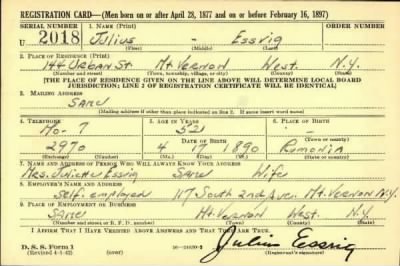 REGISTRATION CARD—(Men born on or after April 28, 1877 and on or before February 16, 1897)
SERIAL NUMBER 1. NAME (Print)
U 2018 Julius - Essvig
(First) (Middle) (Last)
2. PLACE OF RESIDENCE (Print)
144 Urban St Mt. Vernon West. N.Y.
(Number and street) (Town, township, village, or city) (County) (State)
[THE PLACE OF RESIDENCE GIVEN ON THE LINE ABOVE WILL DETERMINE LOCAL BOARD
JURISDICTION; LINE 2 OF REGISTRATION CERTIFICATE WILL BE IDENTICAL]
3. MAILING ADDRESS
Same
[Mailing address if other than place indicated on line 2. If same insert word same]
4. TELEPHONE 5. AGE IN YEARS 6. PLACE OF BIRTH
Mo-7 52 -
DATE OF BIRTH (Town or county)
2970 4 17 1890 Rumonia
(Exchange) (Number) (Mo.) (Day) (Yr.) (State or country)
7. NAME AND ADDRESS OF PERSON WHO WILL ALWAYS KNOW YOUR ADDRESS
Mrs. Essvig Same Wife
8. EMPLOYER'S NAME AND ADDRESS
Self employed 117 South 2nd Ave. Mt. Vernon N.Y.
9. PLACE OF EMPLOYMENT OR BUSINESS
Same Mt. Vernon West. N.Y.
(Number and street or R. F. D. number) (Town) (County) (State)
I AFFIRM THAT I HAVE VERIFIED ABOVE ANSWERS AND THAT THEY ARE TRUE.
D. S. S. Form 1
(Revised 4-1-42) (over) Julius Essvig
(Registrant's signature)